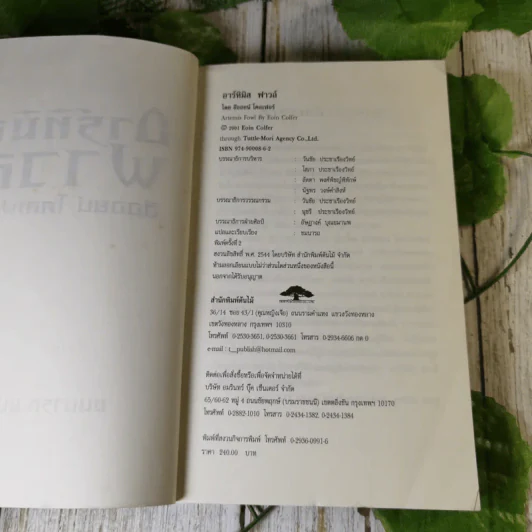 อาร์ทิมิส ฟาวล์
โดย อีออยน์ โคลเฟอร์
Artemis Fowl By Eoin Colfer
© 2001 Eoin Colfer
through Tuttle-Mori Agency Co.,Ltd.
ISBN 974-90968-6-2
บรรณาธิการบริหาร : วันชัย ประชาเรืองวิทย์
: โสภา ประชาเรืองวิทย์
: ณัฐพร
บรรณาธิการวรรณกรรม : วันชัย ประชาเรืองวิทย์
: ประชาเรืองวิทย์
บรรณาธิการฝ่ายศิลป์ :
แปลและเรียบเรียง :
พิมพ์ครั้งที่ 2
สงวนลิขสิทธิ์ พ.ศ. 2544 โดยบริษัท สำนักพิมพ์ต้นไม้ จำกัด
ห้ามลอกเลียนแบบไม่ว่าส่วนใดส่วนหนึ่งของหนังสือนี้
นอกจากได้รับอนุญาต
สำนักพิมพ์ต้นไม้
36/14 ซอย 43/1 (คุณหญิงเจือ) ถนนรามคำแหง แขวงวังทองหลาง
เขตวังทองหลาง กรุงเทพฯ 10310
โทรศัพท์ 0-2530-3651, 0-2530-3661 โทรสาร 0-2934-6606 กด 0
e-mail : t_publish@hotmail.com
ติดต่อเพื่อสั่งซื้อหรือเพื่อจัดจำหน่ายได้ที่
บริษัท อมรินทร์ บุ๊ค เซ็นเตอร์ จำกัด
65/60-62 หมู่ 4 ถนนชัยพฤกษ์ (บรมราชชนนี) เขตตลิ่งชัน กรุงเทพฯ 10170
โทรศัพท์ 0-2882-1010 โทรสาร 0-2434-1382, 0-2434-1384
พิมพ์ที่สงวนกิจการพิมพ์ โทรศัพท์ 0-2936-0091-6
ราคา 249.00 บาท